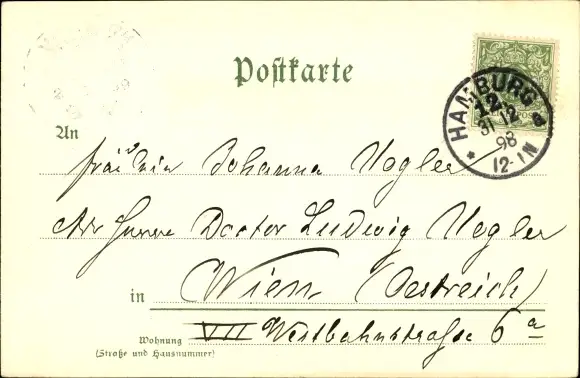 Postkarte
HAMBURG
12
31 12
98
12-1N
An
Fräulein Johanna Vogler
Adr Herrn Doctor Ludwig Vogler
in Wien (Oestreich)
Wohnung VII Westbahnstraße 6 a
(Straße und Hausnummer)